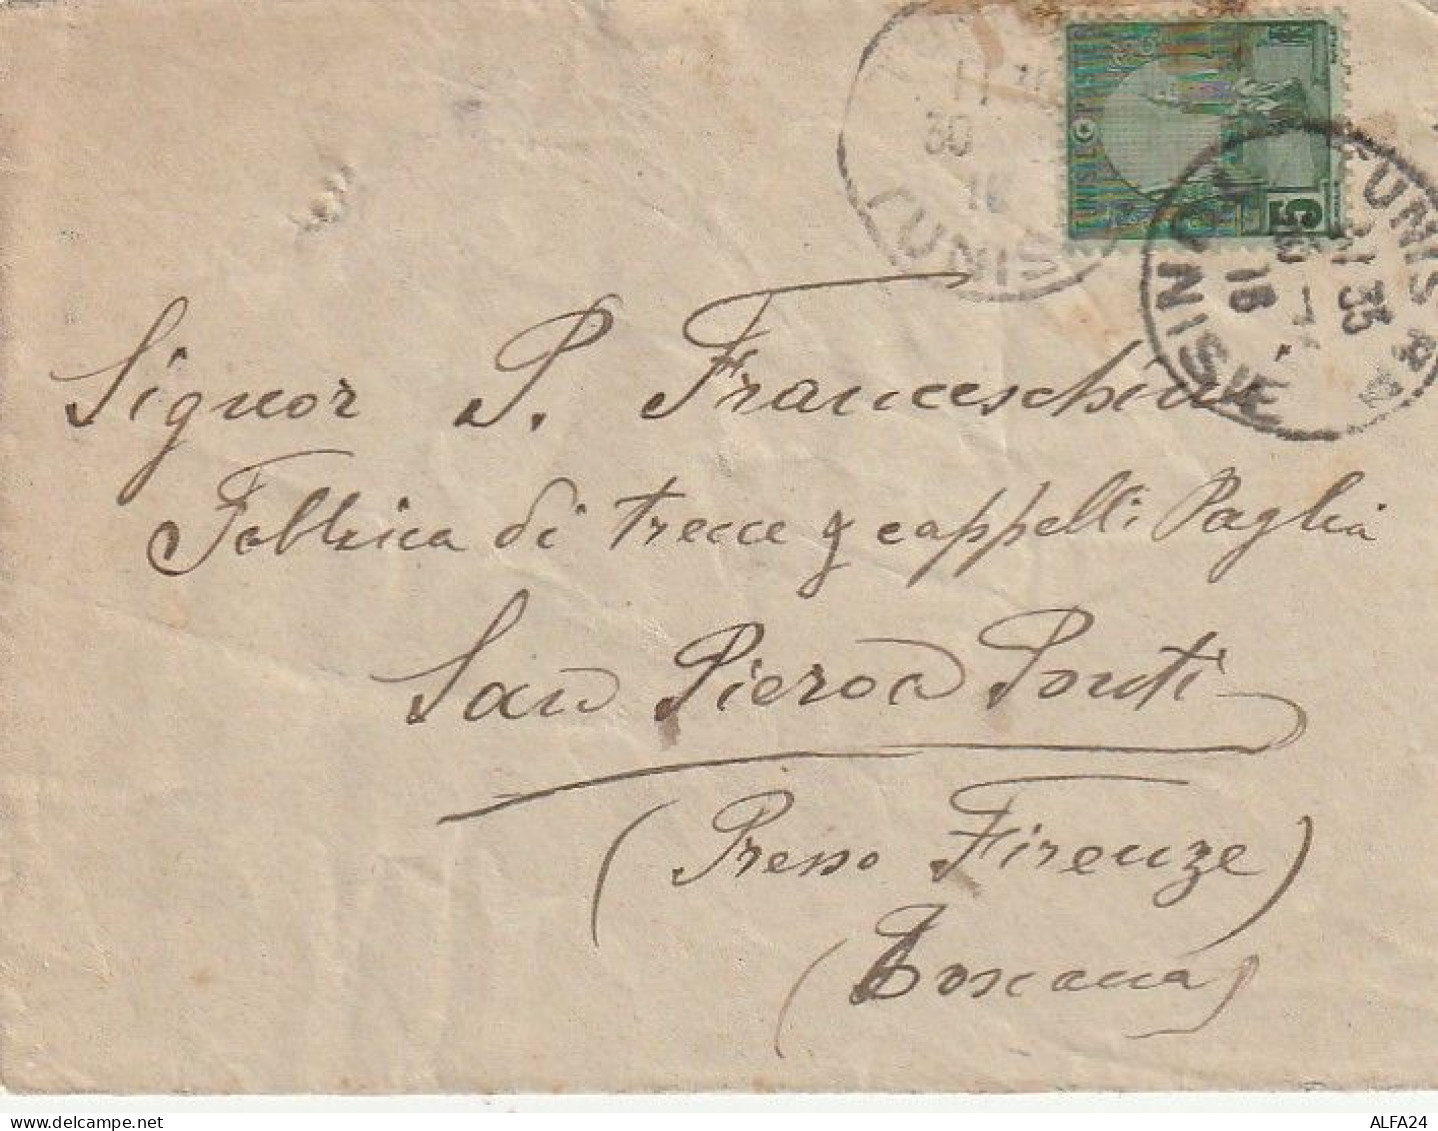 TUNIS
30
16
TUNISIE
5
TUNIS R.P.
35
16
TUNISIE
Signor P. Franceschini
Fabbrica di trecce e cappelli Paglia
San Piero a Ponti
(Presso Firenze)
(Toscana)
ALFA24